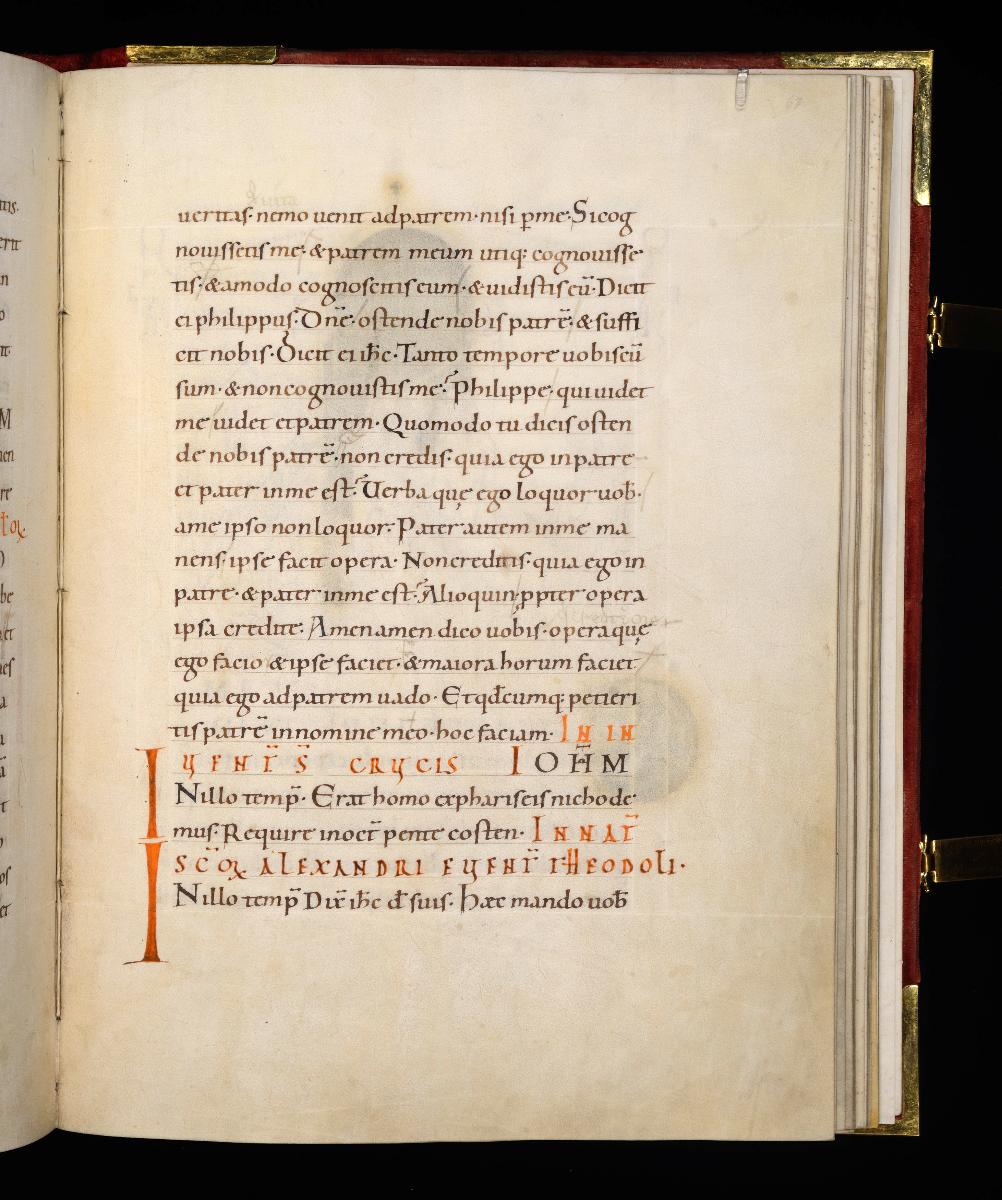 67
ueritas· nemo uenit adpatrem· nisi p̄me· Sicog
nouissetis me· & patrem meum utiq: cognouisse
tis· & amodo cognoscitis eum· & uidistis eū· Dicit
ei philippus· Dn̄e· ostende nobis patrē· & suffi
cit nobis· Dicit ei ih̄c· Tanto tempore uobiscū
sum· & non cognouistis me· Philippe· qui uidet
me uidet et patrem· Quomodo tu dicis osten
de nobis patrē· non credis· quia ego in patre
et pater in me est· Uerba quę ego loquor uob̄·
a me ipso non loquor· Pater autem in me ma
nens· ipse facit opera· Non creditis· quia ego in
patre· & pater in me est· Alioquin ppter opera
ipsa credite· Amen amen dico uobis· opera quę
ego facio & ipse faciet· & maiora horum faciet
quia ego ad patrem uado· Et qđcumq: petieri
tis patrē in nomine meo· hoc faciam· IN IN
UENT̄ S̄ CRUCIS IOH̄M
INillo temp̄· Erat homo ex phariseis nichode
mus· Require in oct̄ pentecosten· IN NAT̄
SC̄OꝜ ALEXANDRI EUENT̄ THEODOLI·
INillo temp̄ Dix̄ ih̄c d̄ suis· Haec mando uob̄